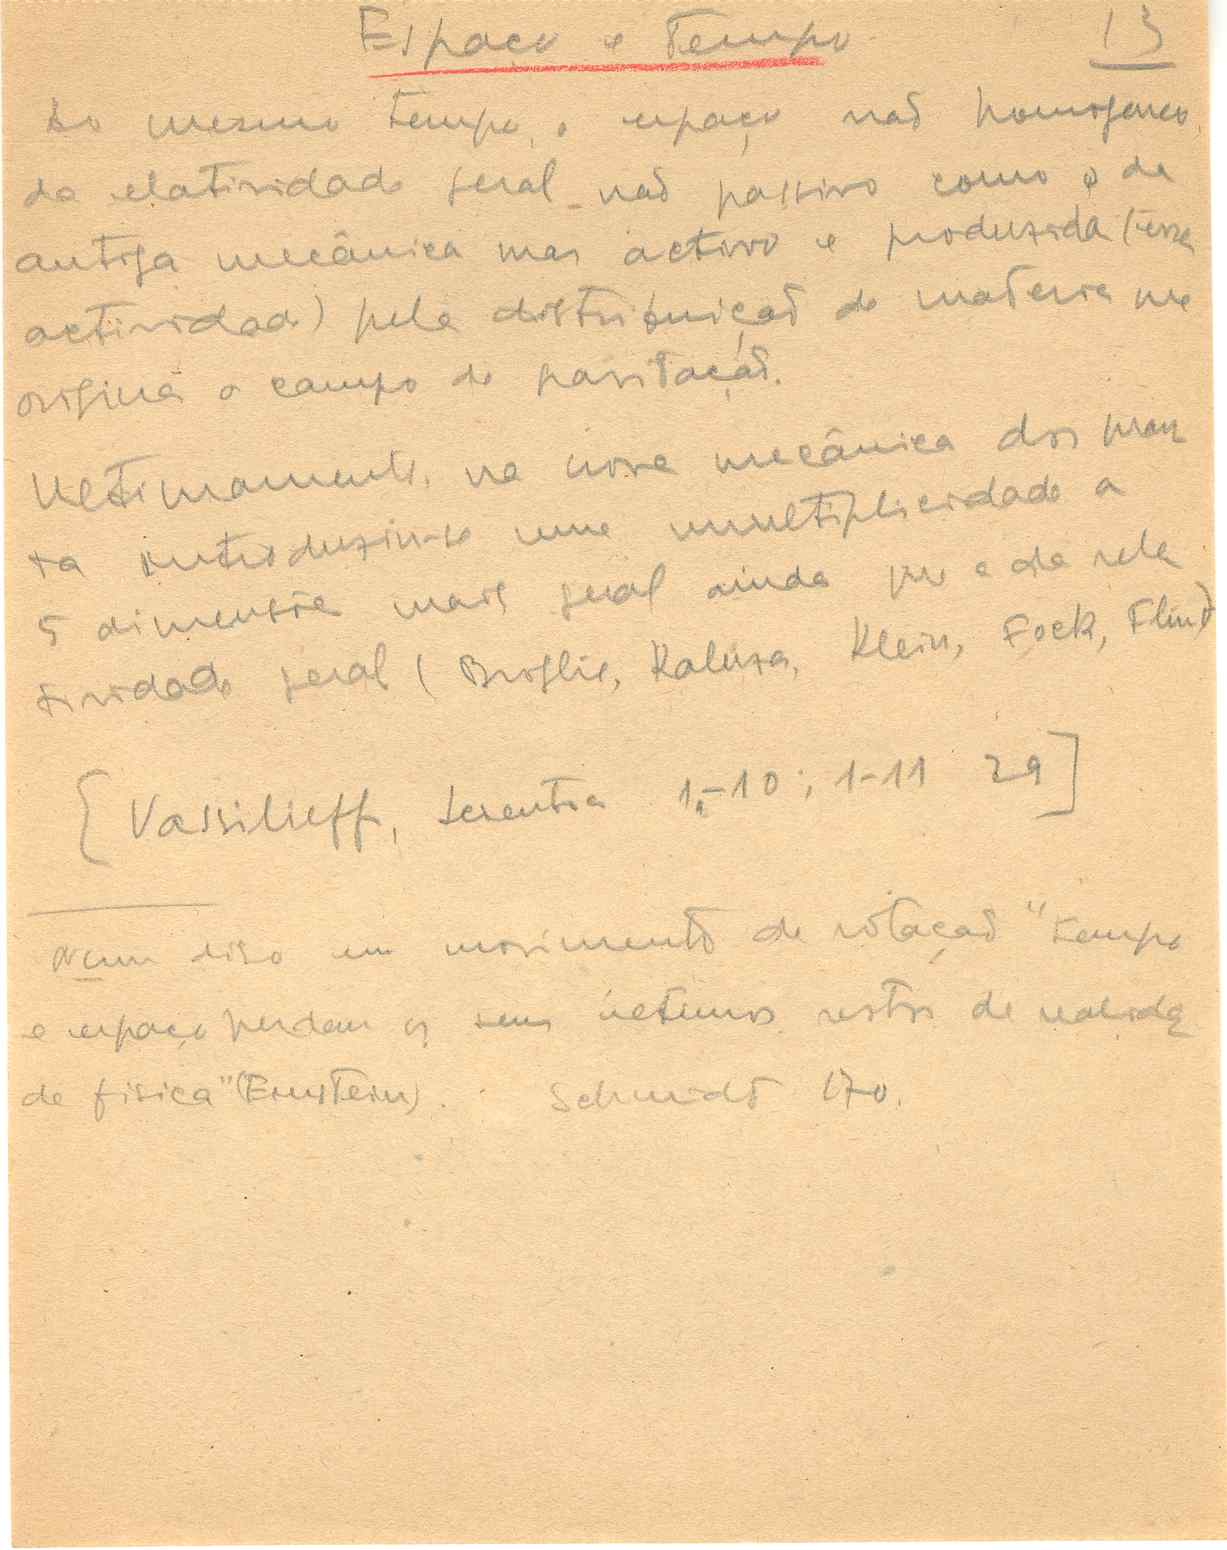 Espaço e Tempo 13
Ao mesmo tempo, o espaço não homogeneo,
da relatividade geral não passivo como o da
antiga mecânica mas activo e produzida (essa
actividade) pela distribuição de materia que
origina o campo de gravitação.
Ultimamente, na nova mecânica dos quan
ta introduziu-se uma multiplicidade a
5 dimensões mais geral ainda que a da rela
tividade geral (Broglie, Kaluza, Klein, Fock, Flint)
[Vassilieff, Scientia 1-10; 1-11 29]
Num disco em movimento de rotação "tempo
e espaço perdem os seus ultimos restos de realida
de fisica" (Einstein). Schmidt 170.